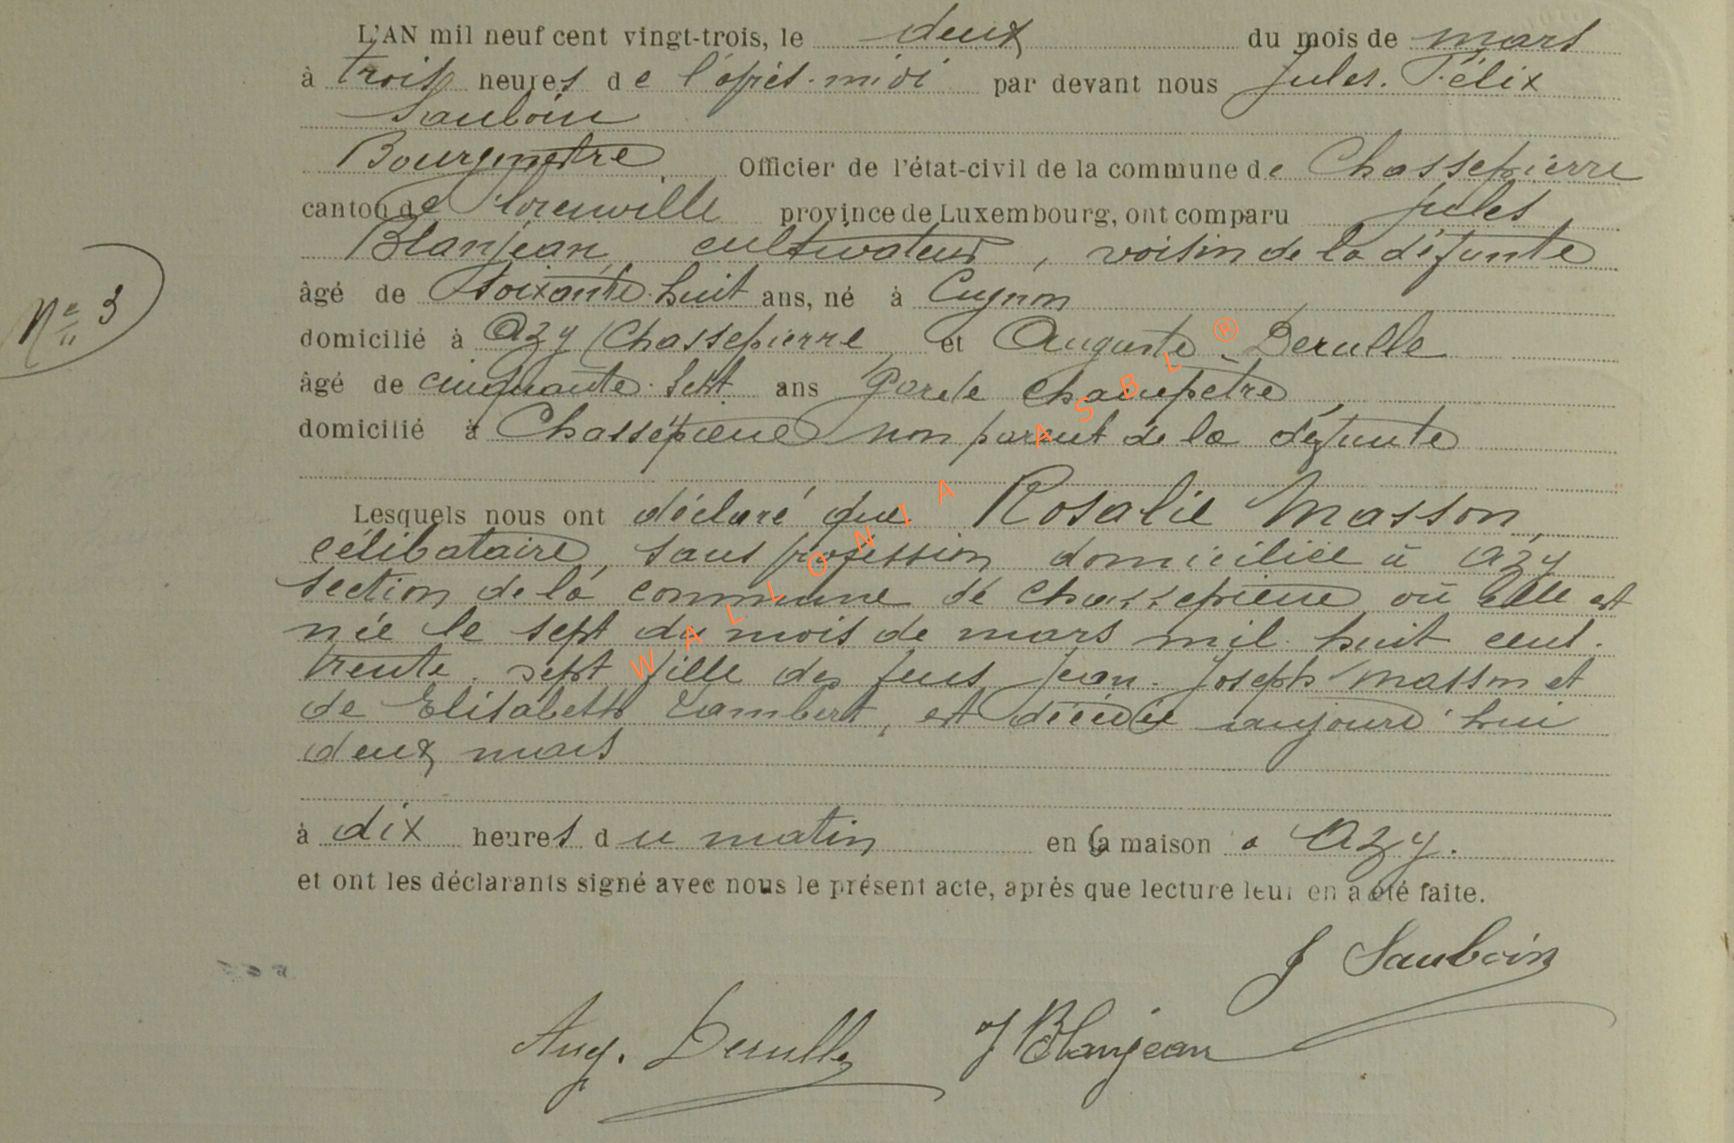 L'AN mil neuf cent vingt-trois, le deux du mois de mars
à trois heures de l'après-midi par devant nous Jules. Félix
Sauboin
Bourgmestre, Officier de l'état-civil de la commune de Chassepierre
canton de Florenville province de Luxembourg, ont comparu jules
Blanjean, cultivateur, voisin de la défunte
âgé de soixante huit ans, né à Cugnon
N° 3
domicilié à Azy (Chassepierre et Auguste Derulle
âgé de cinquante-sept ans garde champetre
domicilié à Chassepierre non parent de la défunte
Lesquels nous ont déclaré que Rosalie Masson,
célibataire, sans profession domiciliée à Azy
section de la commune de Chassepierre où Elle est
née le sept du mois de mars mil huit cent.
trente. sept fille des feus Jean-Joseph Masson et
de Elisabeth Lambert, est décédée aujourd'hui
deux mars
à dix heures du matin en sa maison à Azy.
et ont les déclarants signé avec nous le présent acte, après que lecture leur en a été faite.
J Sauboin
Aug. Derulle J Blanjean
WALLONIA ASBL ®